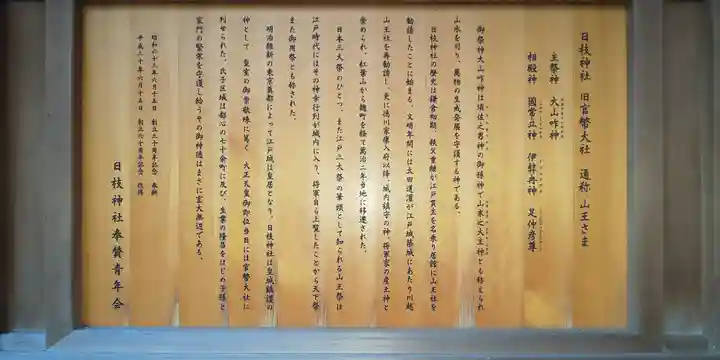 日枝神社 旧官幣大社 通称 山王さま
主祭神 大山咋神
相殿神 國常立神 伊弉冉神 足仲彦尊
御祭神大山咋神は須佐之男神の御孫神で山末之大主神とも称えられ
山水を司り、萬物の生成発展を守護する神である。
日枝神社の歴史は鎌倉初期、秩父重継が江戸貫主を名乗り居館に山王社を
勧請したことに始まる。文明年間には太田道灌が江戸城築城にあたり川越
山王社を再勧請し、更に徳川家康入府以降、城内鎮守の神、将軍家の産土神と
崇められ、紅葉山から麹町を経て萬治二年当地に移遷された。
日本三大祭のひとつ、また江戸三大祭の筆頭として知られる山王祭は
江戸時代にはその神幸行列が城内に入り、将軍自ら上覧したことから天下祭
また御用祭とも称された。
明治維新の東京奠都によって江戸城は皇居となり、日枝神社は皇城鎮護の
神として 皇室の御崇敬殊に篤く 大正天皇御即位当日には官幣大社に
列せられた。氏子区域は都心の七十余町に及び、生業の隆昌をはじめ子孫と
家門の繁栄を守護し給うその御神徳はまさに宏大無辺である。
昭和六十三年六月十五日 創立三十周年記念 奉納
平成三十年六月十五日 創立六十周年記念 改修
日枝神社奉賛青年会